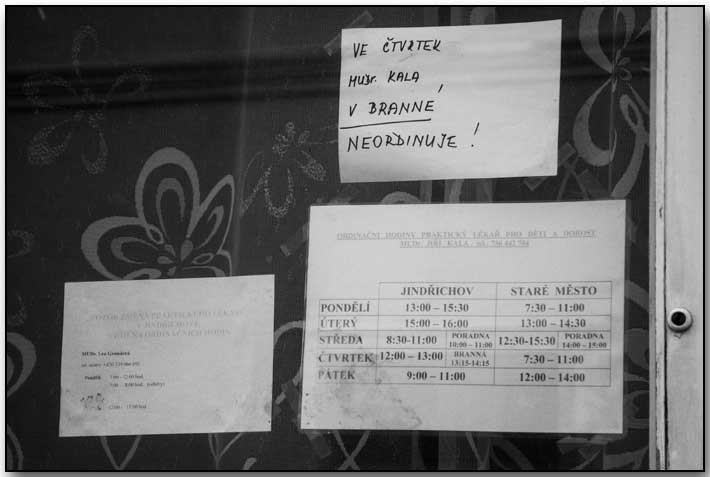 VE ČTVRTEK
MUDr. KALA
V BRANNÉ,
NEORDINUJE!
ORDINAČNÍ HODINY PRAKTICKÝ LÉKAŘ PRO DĚTI A DOROST
MUDr. JIŘÍ KALA - tel.
JINDŘICHOV STARÉ MĚSTO
PONDĚLÍ 13:00 – 15:30 7:30 – 11:00
ÚTERÝ 15:00 – 16:00 13:00 – 14:30
STŘEDA 8:30-11:00 PORADNA 10:00 – 11:00 12:30-15:30 PORADNA 14:00 – 15:00
ČTVRTEK 12:00 – 13:00 BRANNÁ 13:15-14:15 7:30 – 11:00
PÁTEK 9:00 – 11:00 12:00 – 14:00
POZOR ZMĚNA PRAKTICKÉHO LÉKAŘE
V JINDŘICHOVĚ
ORDINAČNÍCH HODIN
MUDr. Lea
Pondělí